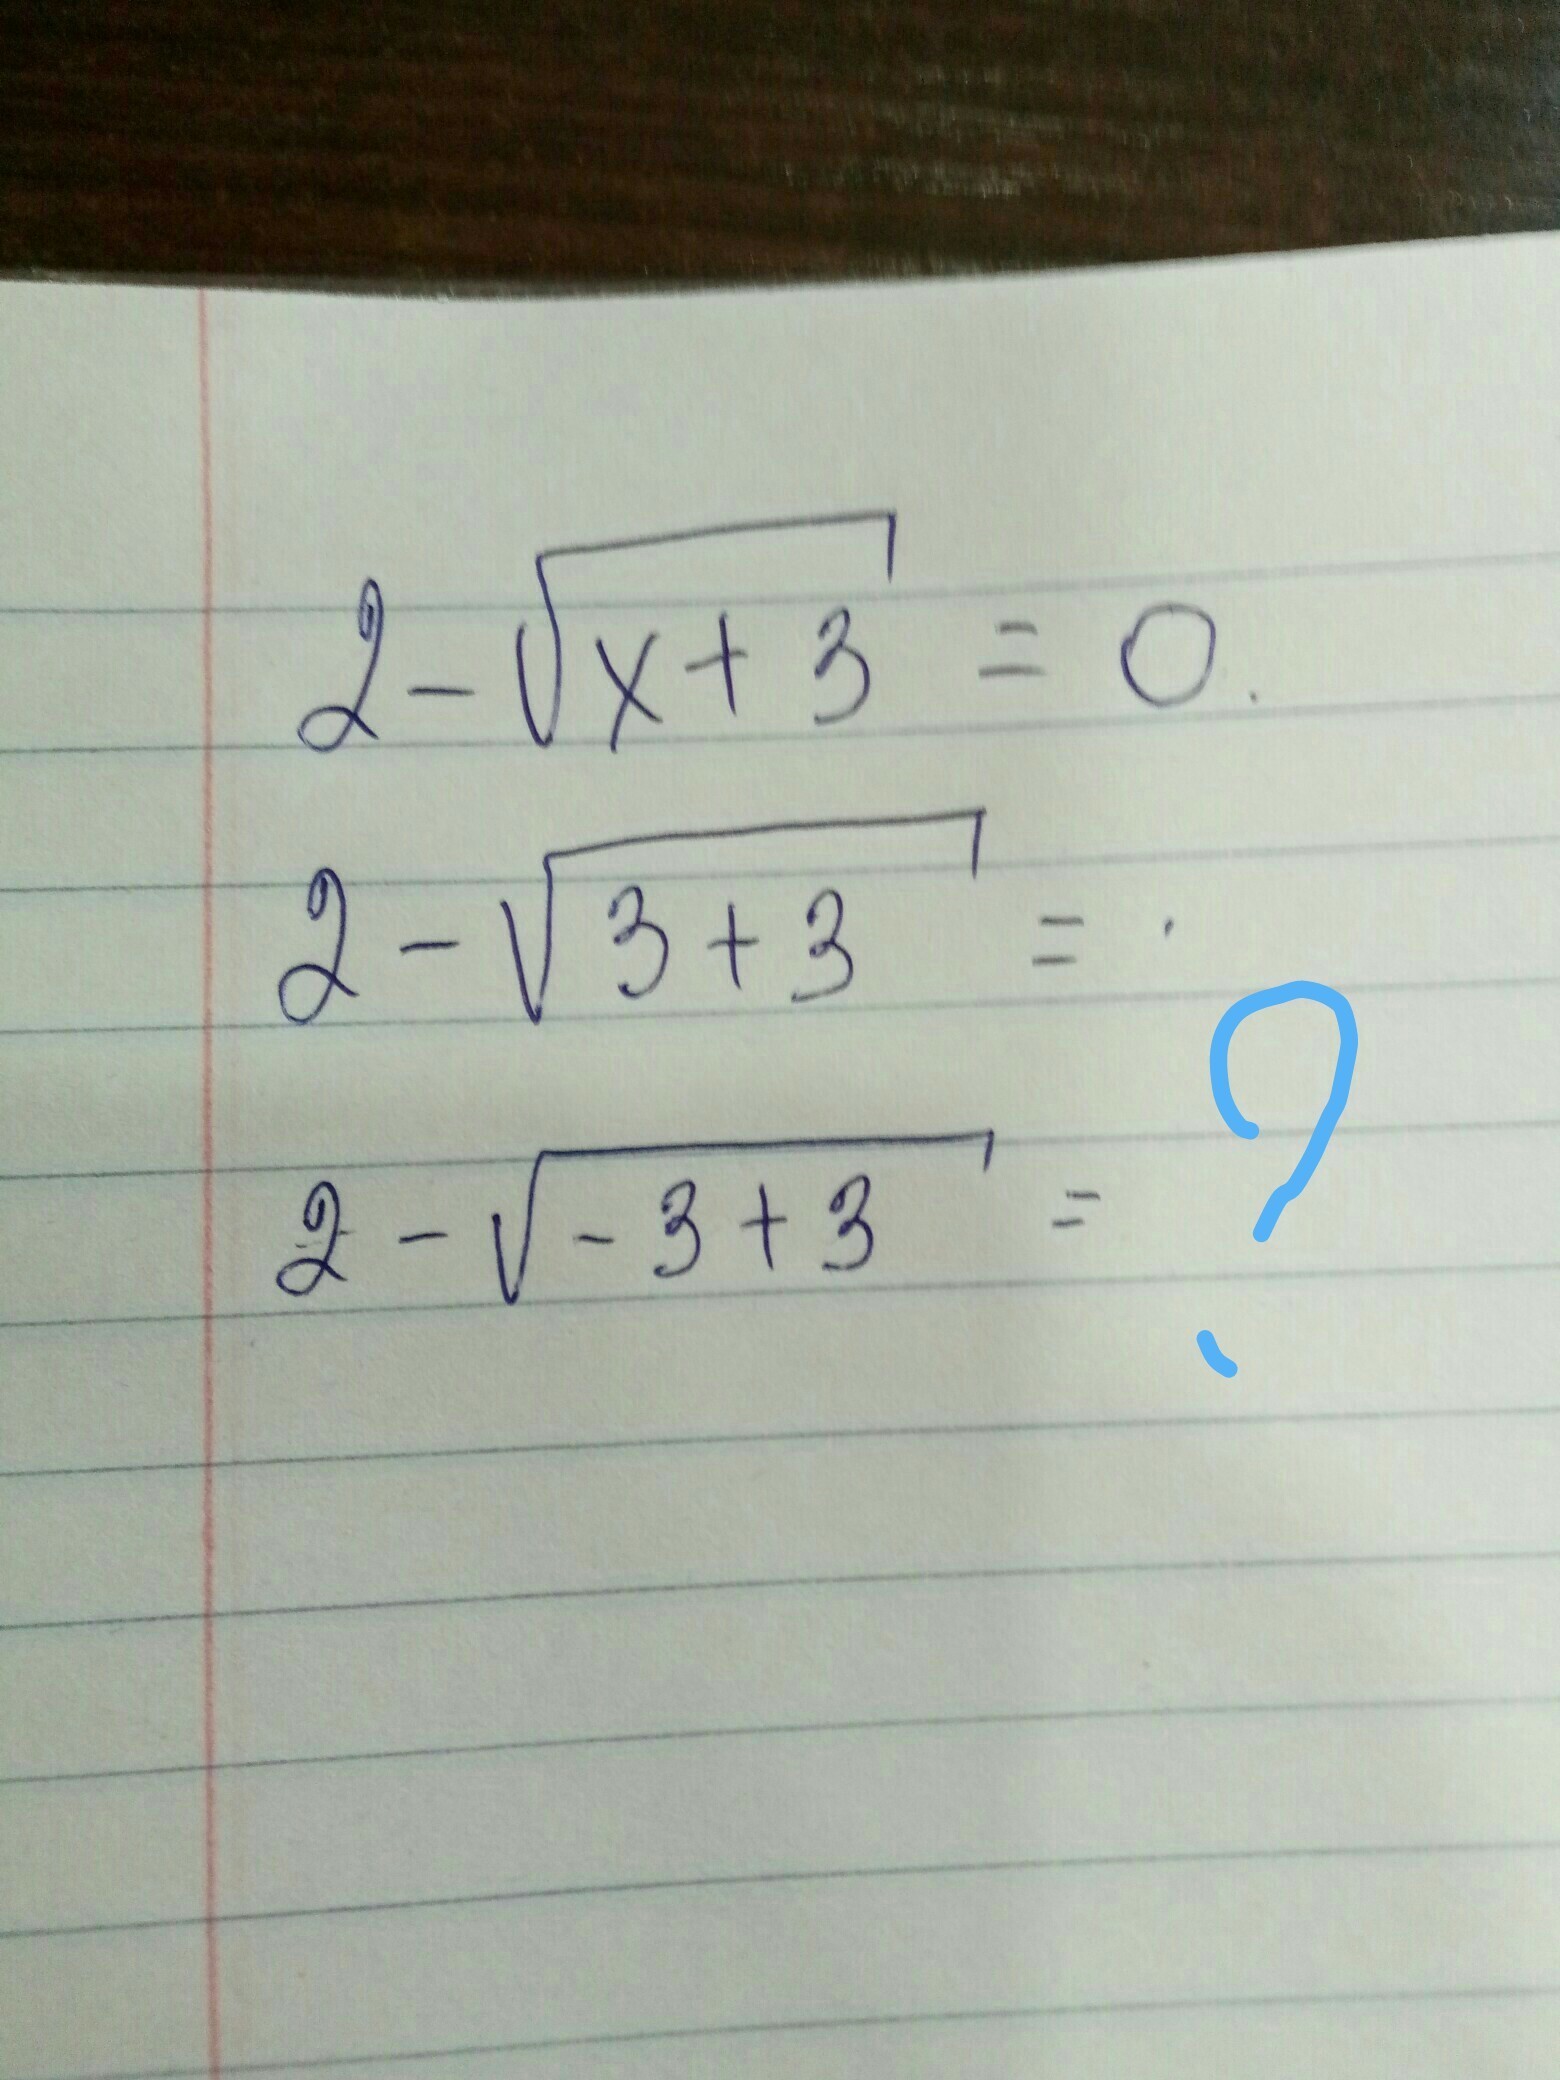 2 - √x + 3 = 0.
2 - √3 + 3 = .
2 - √-3 + 3 = ?